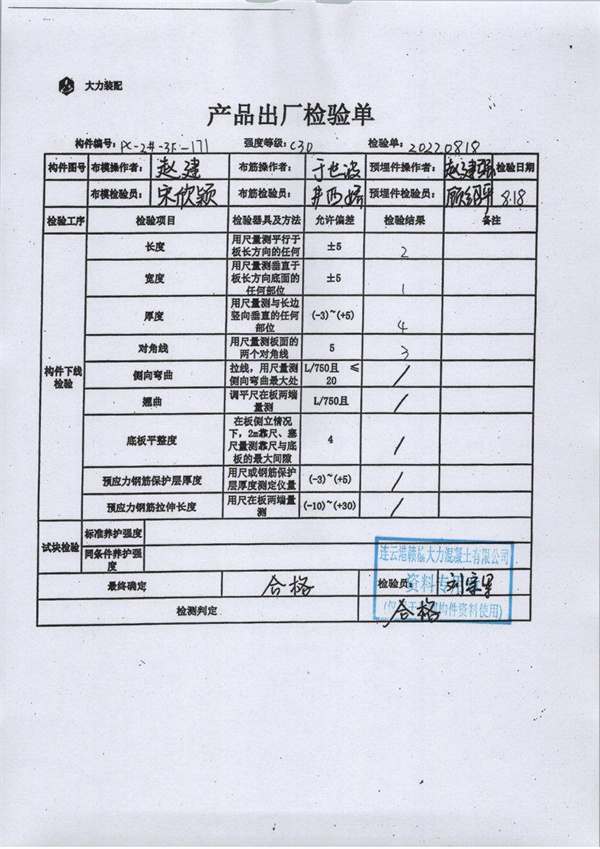 大力装配
产品出厂检验单
构件编号: PC-2#-3F-171 强度等级: C30 检验单: 20220818
构件图号 布模操作者: 赵建 布筋操作者: 于世波 预埋件操作者: 赵建强 检验日期
布模检验员: 宋欣颖 布筋检验员: 预埋件检验员: 8.18
检验工序 检验项目 检验器具及方法 允许偏差 检验结果 备注
构件下线检验
长度 用尺量测平行于板长方向的任何 ±5 2
宽度 用尺量测垂直于板长方向底面的任何部位 ±5 1
厚度 用尺量测与长边竖向垂直的任何部位 (-3)~(+5) 4
对角线 用尺量测板面的两个对角线 5 3
侧向弯曲 拉线，用尺量测侧向弯曲最大处 L/750且 ≤20 /
翘曲 调平尺在板两端量测 L/750且 /
底板平整度 在板侧立情况下，2m靠尺、塞尺量测靠尺与底板的最大间隙 4 /
预应力钢筋保护层厚度 用尺或钢筋保护层厚度测定仪量 (-3)~(+5) /
预应力钢筋拉伸长度 用尺在板两端量测 (-10)~(+30) /
试块检验 标准养护强度
同条件养护强度
连云港赣榆大力混凝土有限公司
最终确定 合格 检验员:
资料专用
检测判定 合格